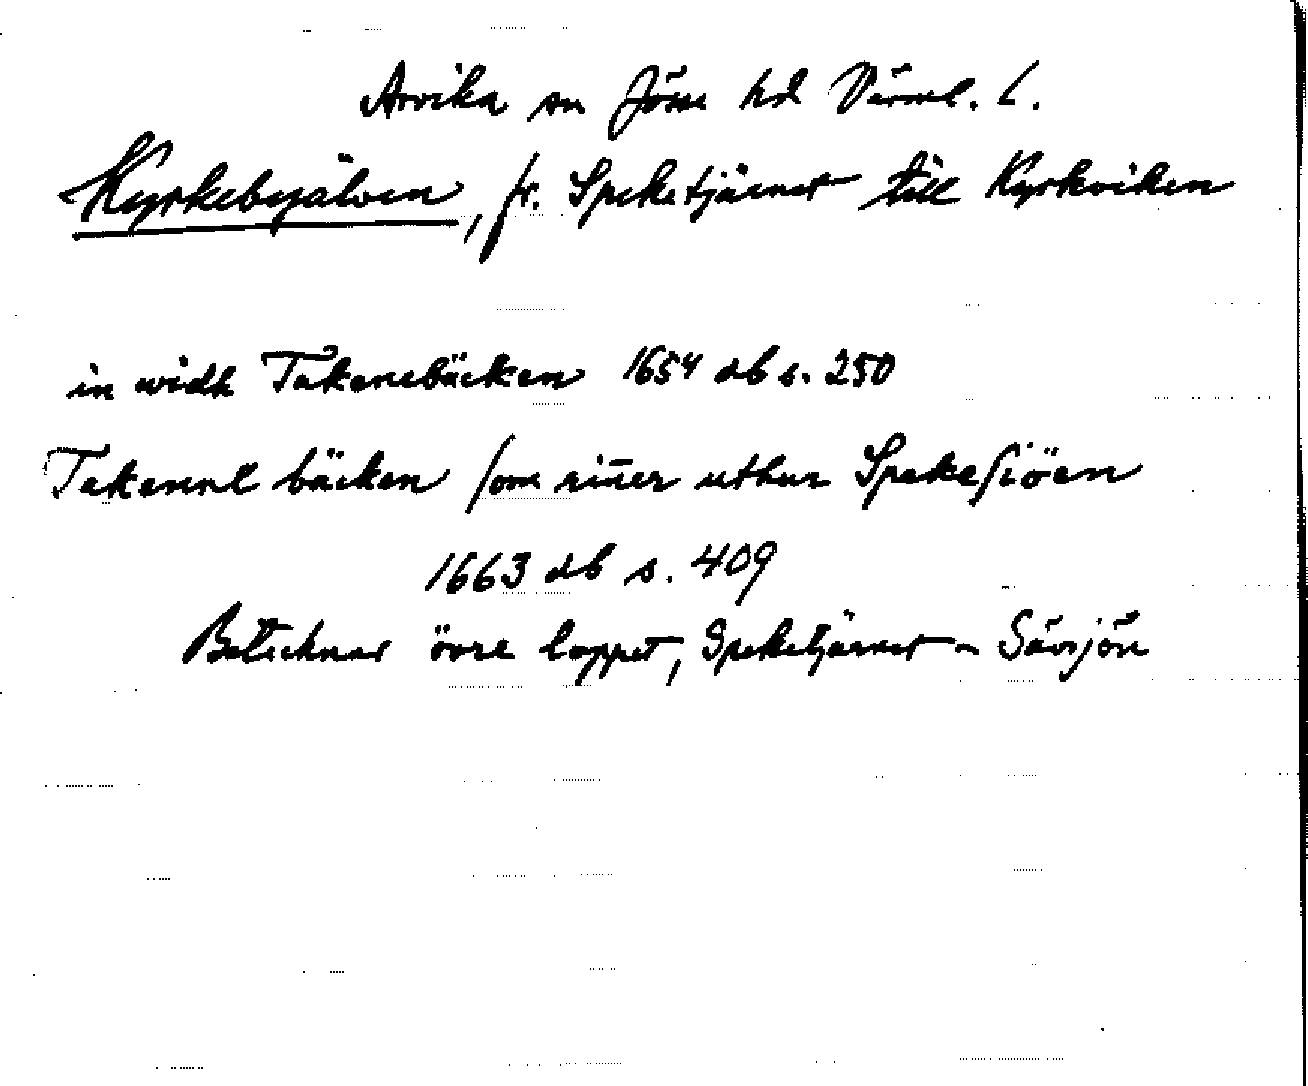 Arvika sn Jösse hd Värml. L.
Kyrkebyälven, fr. Speketjärnet till Kyrkviken
in widh Takenebäcken 1654 db s. 250
Takenne bäcken som riñer uthur Spekesiöen
1663 db s. 409
Betecknar övre loppet, Speketjärnet - Sävsjön